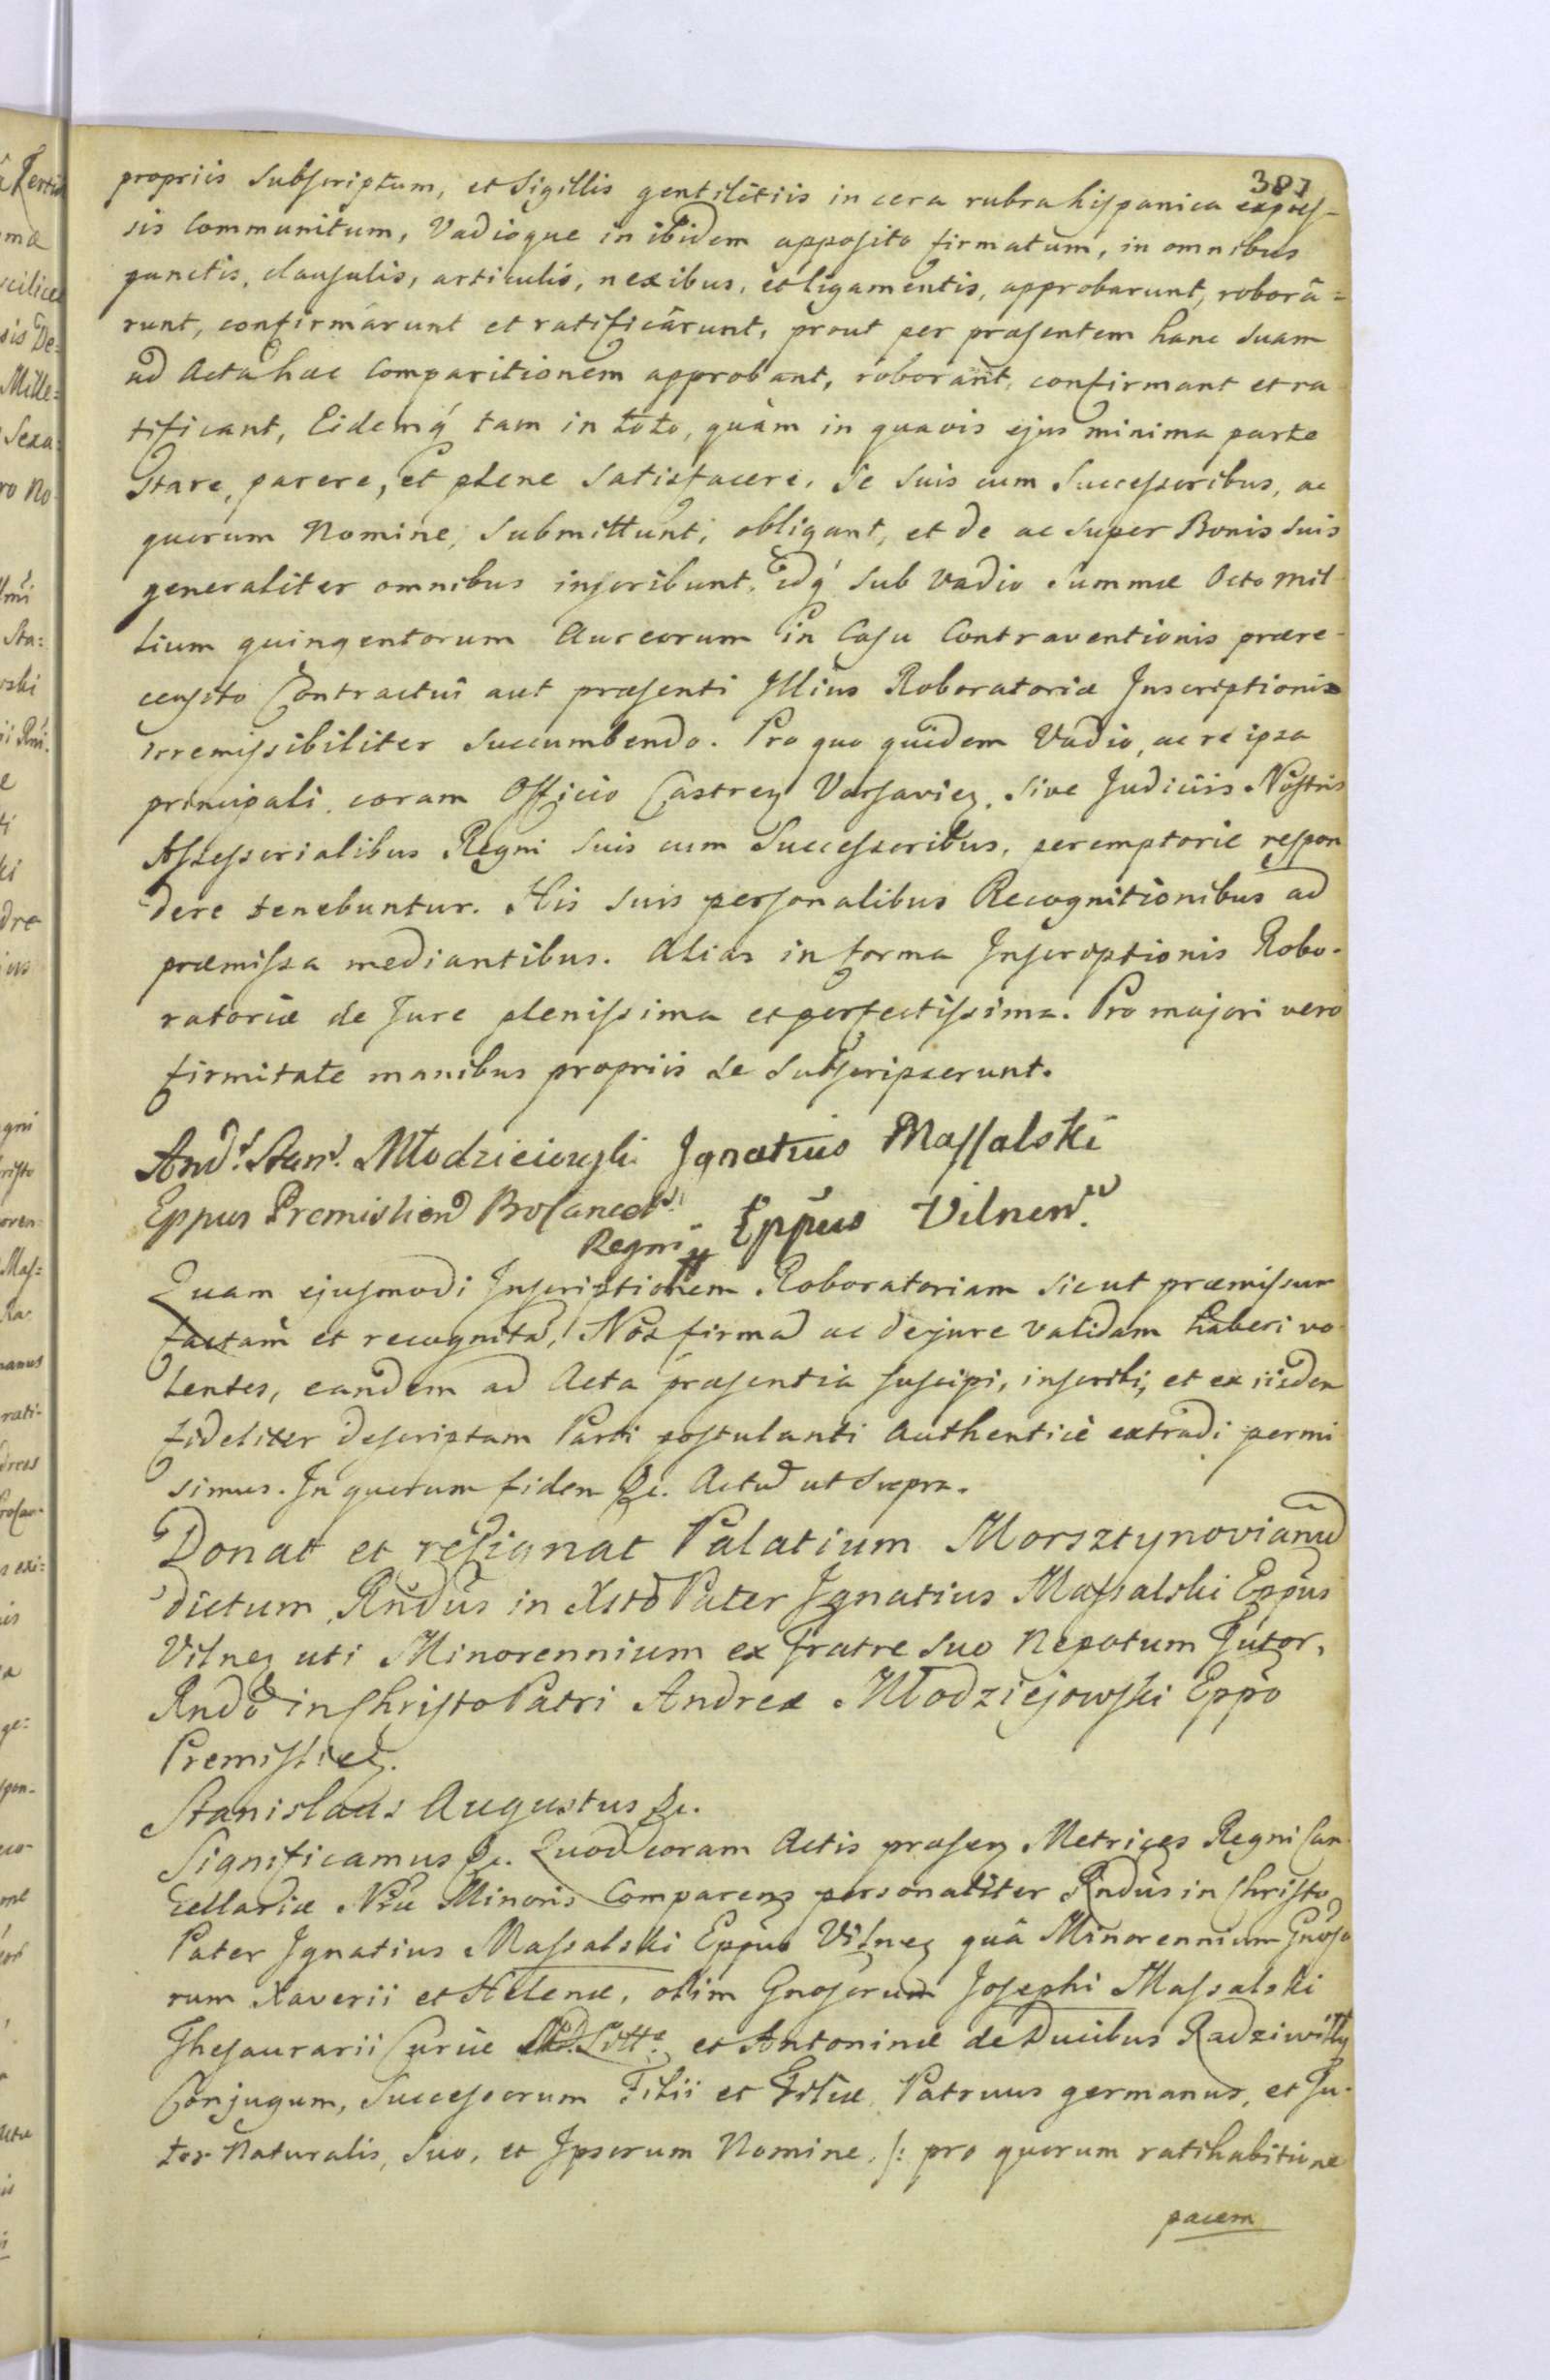 387
propriis Subscriptum, et Sigillis gentilitiis in cera rubra hispanica expres-
sis Communitum, Vadioque in ibidem apposito firmatum, in omnibus
punctis, clausulis, articulis, nexibus, et ligamentis, approbarunt, roborâ=
runt, confirmârunt et ratificârunt, prout per præsentem hanc suam
ad Acta hæc Comparitionem approbant, roborant, confirmant et ra
tificant, Eidemq́ tam in toto, quàm in quavis ejus minima parte
Stare, parere, et plene Satisfacere, Se Suis cum Successoribus, ac
quorum Nomine, Submittunt, obligant, et de ac Super Bonis Suis
generaliter omnibus inscribunt. idq́ Sub Vadio Summæ Octo mil
lium quingentorum Aureorum in Casu Contraventionis prære-
censito Contractui aut præsenti Illius Roboratoriæ Inscriptionis
irremissibiliter Succumbendo. Pro quo quidem Vadio, ac re ipsa
principali, coram Officio Castren Varsavien, Sive Judiciis Nostris
Assessorialibus Regni Suis cum Successoribus, peremptorie respon
dere tenebuntur. His Suis personalibus Recognitionibus ad
præmissa mediantibus. Alias in forma Inscriptionis Robo-
ratoriæ de Jure plenissima et perfectissima. Pro majori vero
firmitate manibus propriis Se Subscripserunt.
And: Stan: Młodzieiowski Ignatius Massalski
Eppus Premislien Procancel:
Regni Eppus Vilnen:
Quam ejusmodi Inscriptionem Roboratoriam Sicut præmissum
factam et recognitã, Nos firmã ac de jure validam haberi vo
lentes, eandem ad Acta præsentia Suscipi, inscribi, et ex iisdem
fideliter descriptam Parti postulanti Authenticè extradi permi
simus. In quorum fidem &c. Actũ ut Supra.
Donat et resignat Palatium Morsztynovianũ
dictum, Rñdus in Xsto Pater Ignatius Massalski Eppũs
Vilnen uti Minorennium ex fratre Suo Nepotum Tutor,
Rndo in Christo Patri Andreæ Młodziejowski Eppo
Premislien.
Stanislaus Augustus &c.
Significamus &c. Quod coram Actis præsen Metrices Regni Can
cellariæ Nræ Minoris Comparens personaliter Rndus in Christo
Pater Ignatius Massalski Eppus Vilnen quâ Minorennium Gnoso
rum Xaverii et Helenæ, olim Gnosorum Josephi Massalski
Thesaurarii Curiæ M.D.Litt: et Antoninæ de Ducibus Radziwiłły
Conjugum, Successorum Filii et Filiæ, Patruus germanus, et Tu-
tor Naturalis, Suo, et Ipsorum Nomine, /: pro quorum ratihabitione
pacem